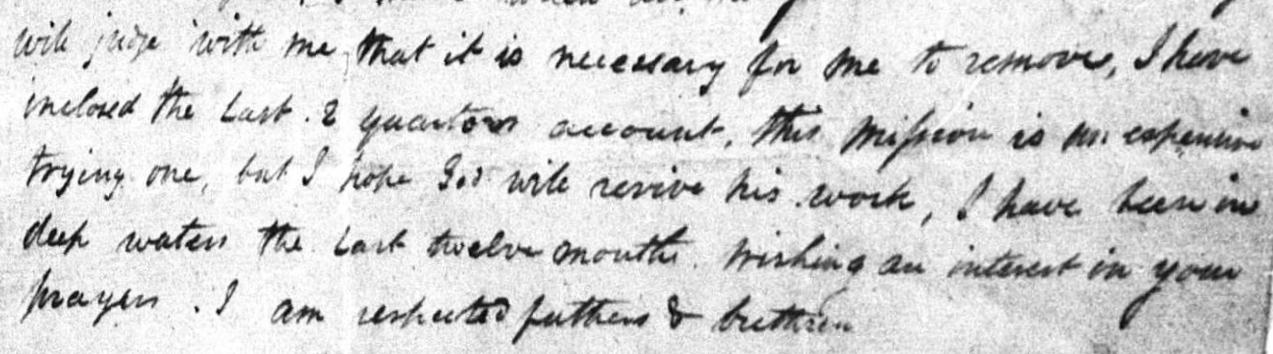 will judge with me, that it is necessary for me to remove, I have
inclosed the Last . 2 quarters account, this Mission is an expensive
trying one, but I hope God will revive his work, I have been in
deep waters the Last twelve months. Wishing an interest in your
prayers . I am respected fathers & brethren